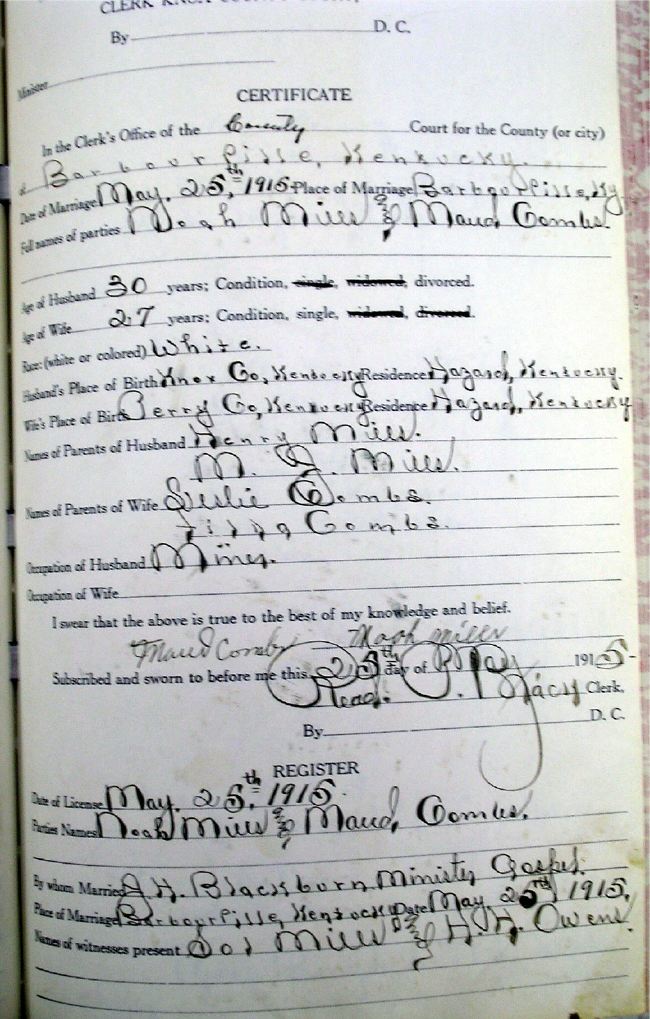 CLERK KNOX COUNTY
By D. C.
Minister
CERTIFICATE
In the Clerk's Office of the County Court for the County (or city)
of Barbourville, Kentucky.
Date of Marriage May. 25,th 1915 Place of Marriage Barbourville, Ky
Full names of parties Noah Mills & Maud Combs.
Age of Husband 30 years; Condition, single, widowed, divorced.
Age of Wife 27 years; Condition, single, widowed, divorced.
Race: (white or colored) White.
Husband's Place of Birth Knox Co, Kentucky Residence Hazard, Kentucky.
Wife's Place of Birth Perry Co, Kentucky Residence Hazard, Kentucky
Names of Parents of Husband Henry Mills.
M. J. Mills.
Names of Parents of Wife Leslie Combs.
Combs.
Occupation of Husband Miner.
Occupation of Wife
I swear that the above is true to the best of my knowledge and belief.
Maud Combs Noah Mills
Subscribed and sworn to before me this 25th day of May 1915-
Read. P. Clerk.
By D. C.
REGISTER
Date of License May. 25,th 1915.
Parties Names Noah Mills & Maud, Combs.
By whom Married A. H. Blackburn Minister Gospel.
Place of Marriage Barbourville, Kentucky Date May. 25 1915.
Names of witnesses present Dol Mills & H. H. Owens.